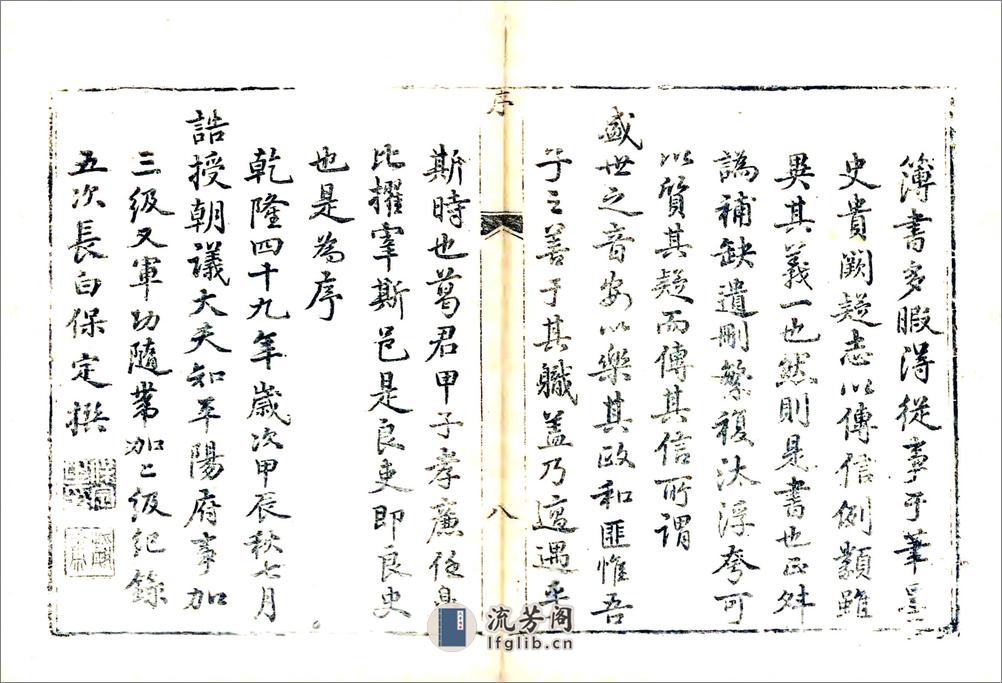 簿書多暇得從事于筆墨
史貴闕疑志以傳信例類雖
異其義一也然則是書也正舛
譌補缺遺刪繁複汰浮夸可
以質其疑而傳其信所謂
盛世之音安以樂其政和匪惟吾
子之善于其職蓋乃適遇乎
序
八
斯時也葛君甲子孝廉從
比擢宰斯邑是良吏即良史
也是為序
乾隆四十九年歲次甲辰秋七月
誥授朝議大夫知平陽府事加
三級又軍功隨帶加二級紀錄
五次長白保定撰
流芳阁
lfglib.cn